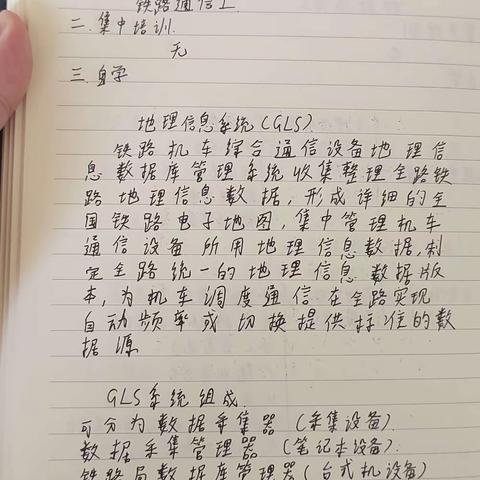 铁路通信工
二.集中培训.
无
三.自学
地理信息系统(GLS).
铁路机车综合通信设备地理信
息数据库管理系统收集整理全路铁
路地理信息数据,形成详细的全
国铁路电子地图,集中管理机车
通信设备所用地理信息数据,制
定全路统一的地理信息数据版
本,为机车调度通信在全路实现
自动频率或切换提供标准的数
据源
GLS系统组成.
可分为数据采集器(采集设备).
数据采集管理器(笔记本设备).
铁路局数据库管理器(台式机设备)